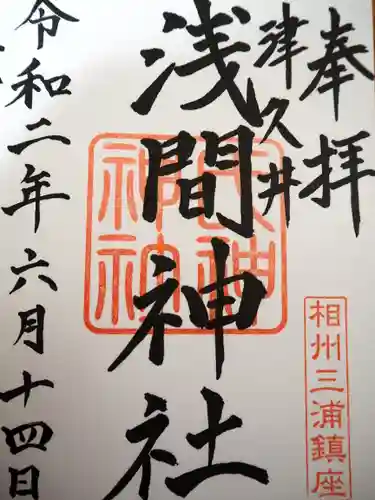 奉拝
津久井
浅間神社
令和二年六月十四日
相州三浦鎮座